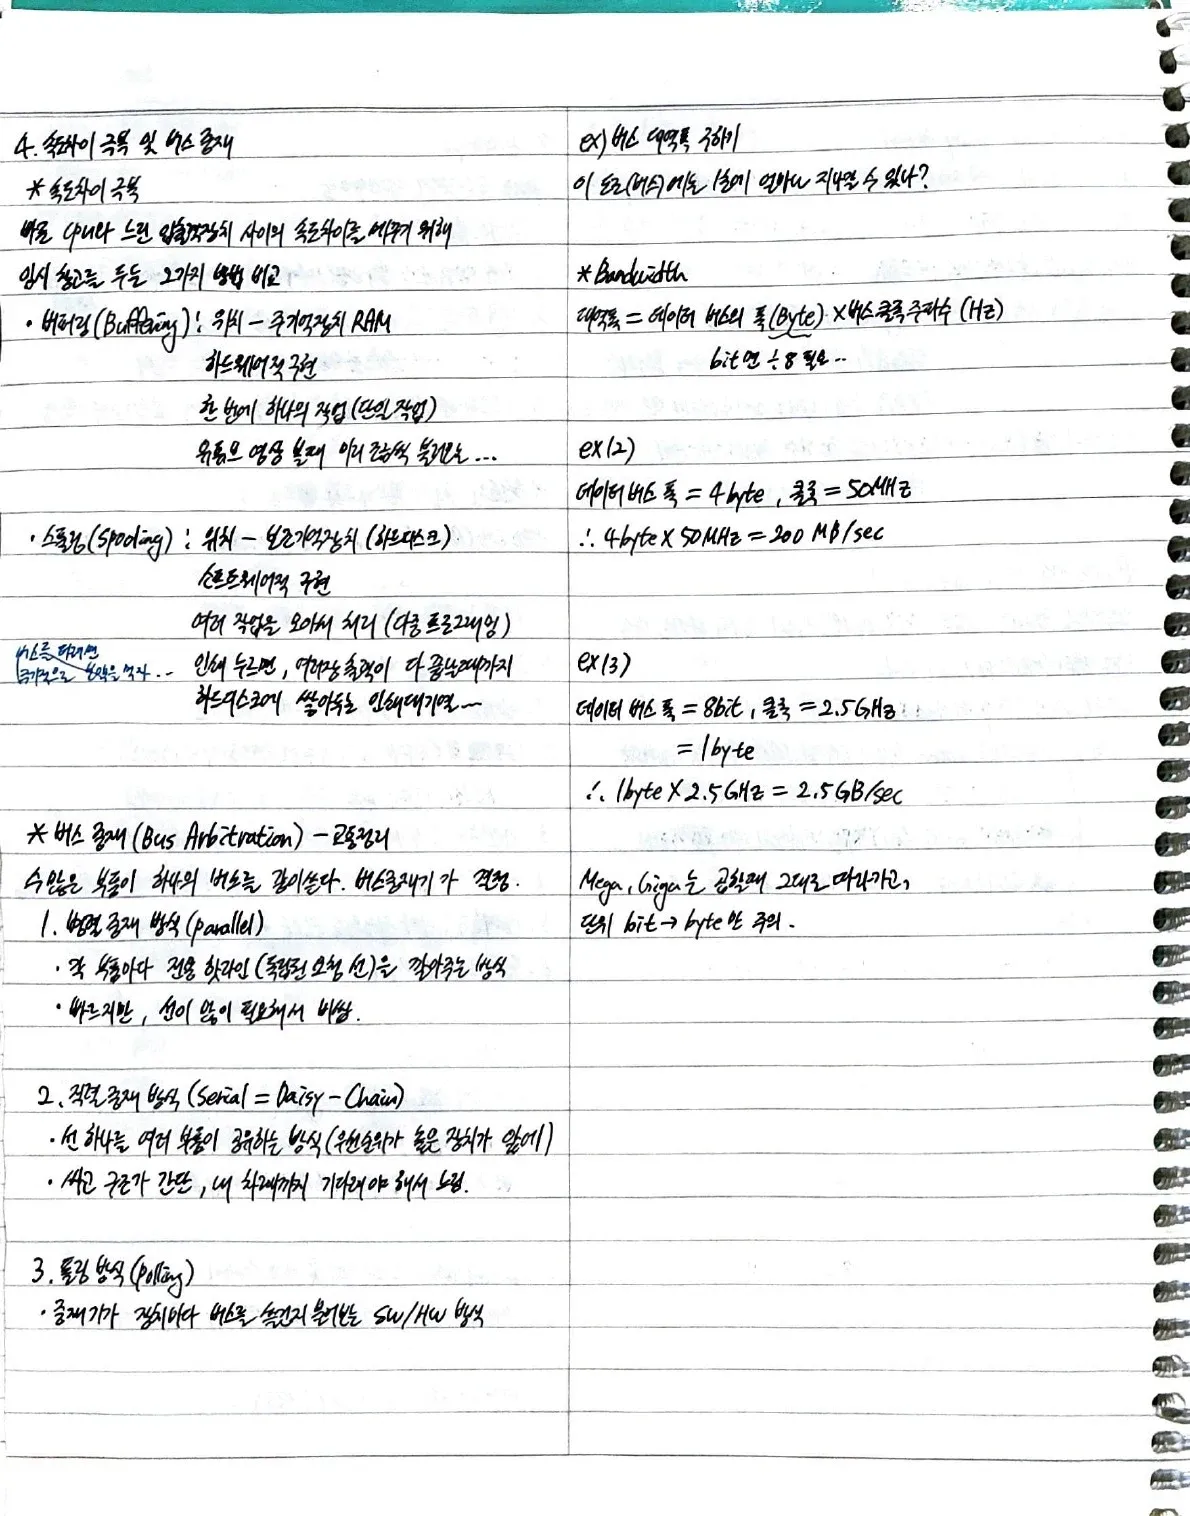 4. 속도차이 극복 및 버스 중재
* 속도차이 극복
빠른 CPU와 느린 입출력장치 사이의 속도차이를 메꾸기 위해
임시 창고를 두는 2가지 방법 비교
· 버퍼링(Buffering) : 위치 - 주기억장치 RAM
하드웨어적 구현
한 번에 하나의 작업(단일 작업)
유튜브 영상 볼때 미리 조금씩 불러오는...
· 스풀링(Spooling) : 위치 - 보조기억장치 (하드디스크)
소프트웨어적 구현
여러 작업을 모아서 처리 (다중 프로그래밍)
인쇄 누르면, 여러장 출력이 다 끝날때까지
하드디스크에 쌓아두는 인쇄대기열...
버스를 타려면
...
* 버스 중재 (Bus Arbitration) - 교통정리
수많은 부품이 하나의 버스를 같이쓴다. 버스중재기가 결정.
1. 병렬 중재 방식 (parallel)
· 각 부품마다 전용 핫라인 (독립된 요청 선)을 깔아주는 방식
· 빠르지만, 선이 많이 필요해서 비쌈.
2. 직렬 중재 방식 (Serial = Daisy-Chain)
· 선 하나를 여러 부품이 공유하는 방식 (우선순위가 높은 장치가 앞에)
· 싸고 구조가 간단, 내 차례까지 기다려야 해서 느림.
3. 폴링 방식 (Polling)
· 중재기가 장치마다 버스를 쓸건지 물어보는 SW/HW 방식
ex) 버스 대역폭 구하기
이 도로(버스)에는 1초에 얼마나 지나갈 수 있나?
* Bandwidth
대역폭 = 데이터 버스의 폭(Byte) × 버스클록주파수 (Hz)
bit면 ÷8 필요..
ex(2)
데이터 버스 폭 = 4byte, 클록 = 50MHz
∴ 4byte × 50MHz = 200 MB/sec
ex(3)
데이터 버스 폭 = 8bit, 클록 = 2.5GHz
= 1byte
∴ 1byte × 2.5GHz = 2.5GB/sec
Mega, Giga는 곱할때 그대로 따라가고,
단위 bit → byte만 주의.